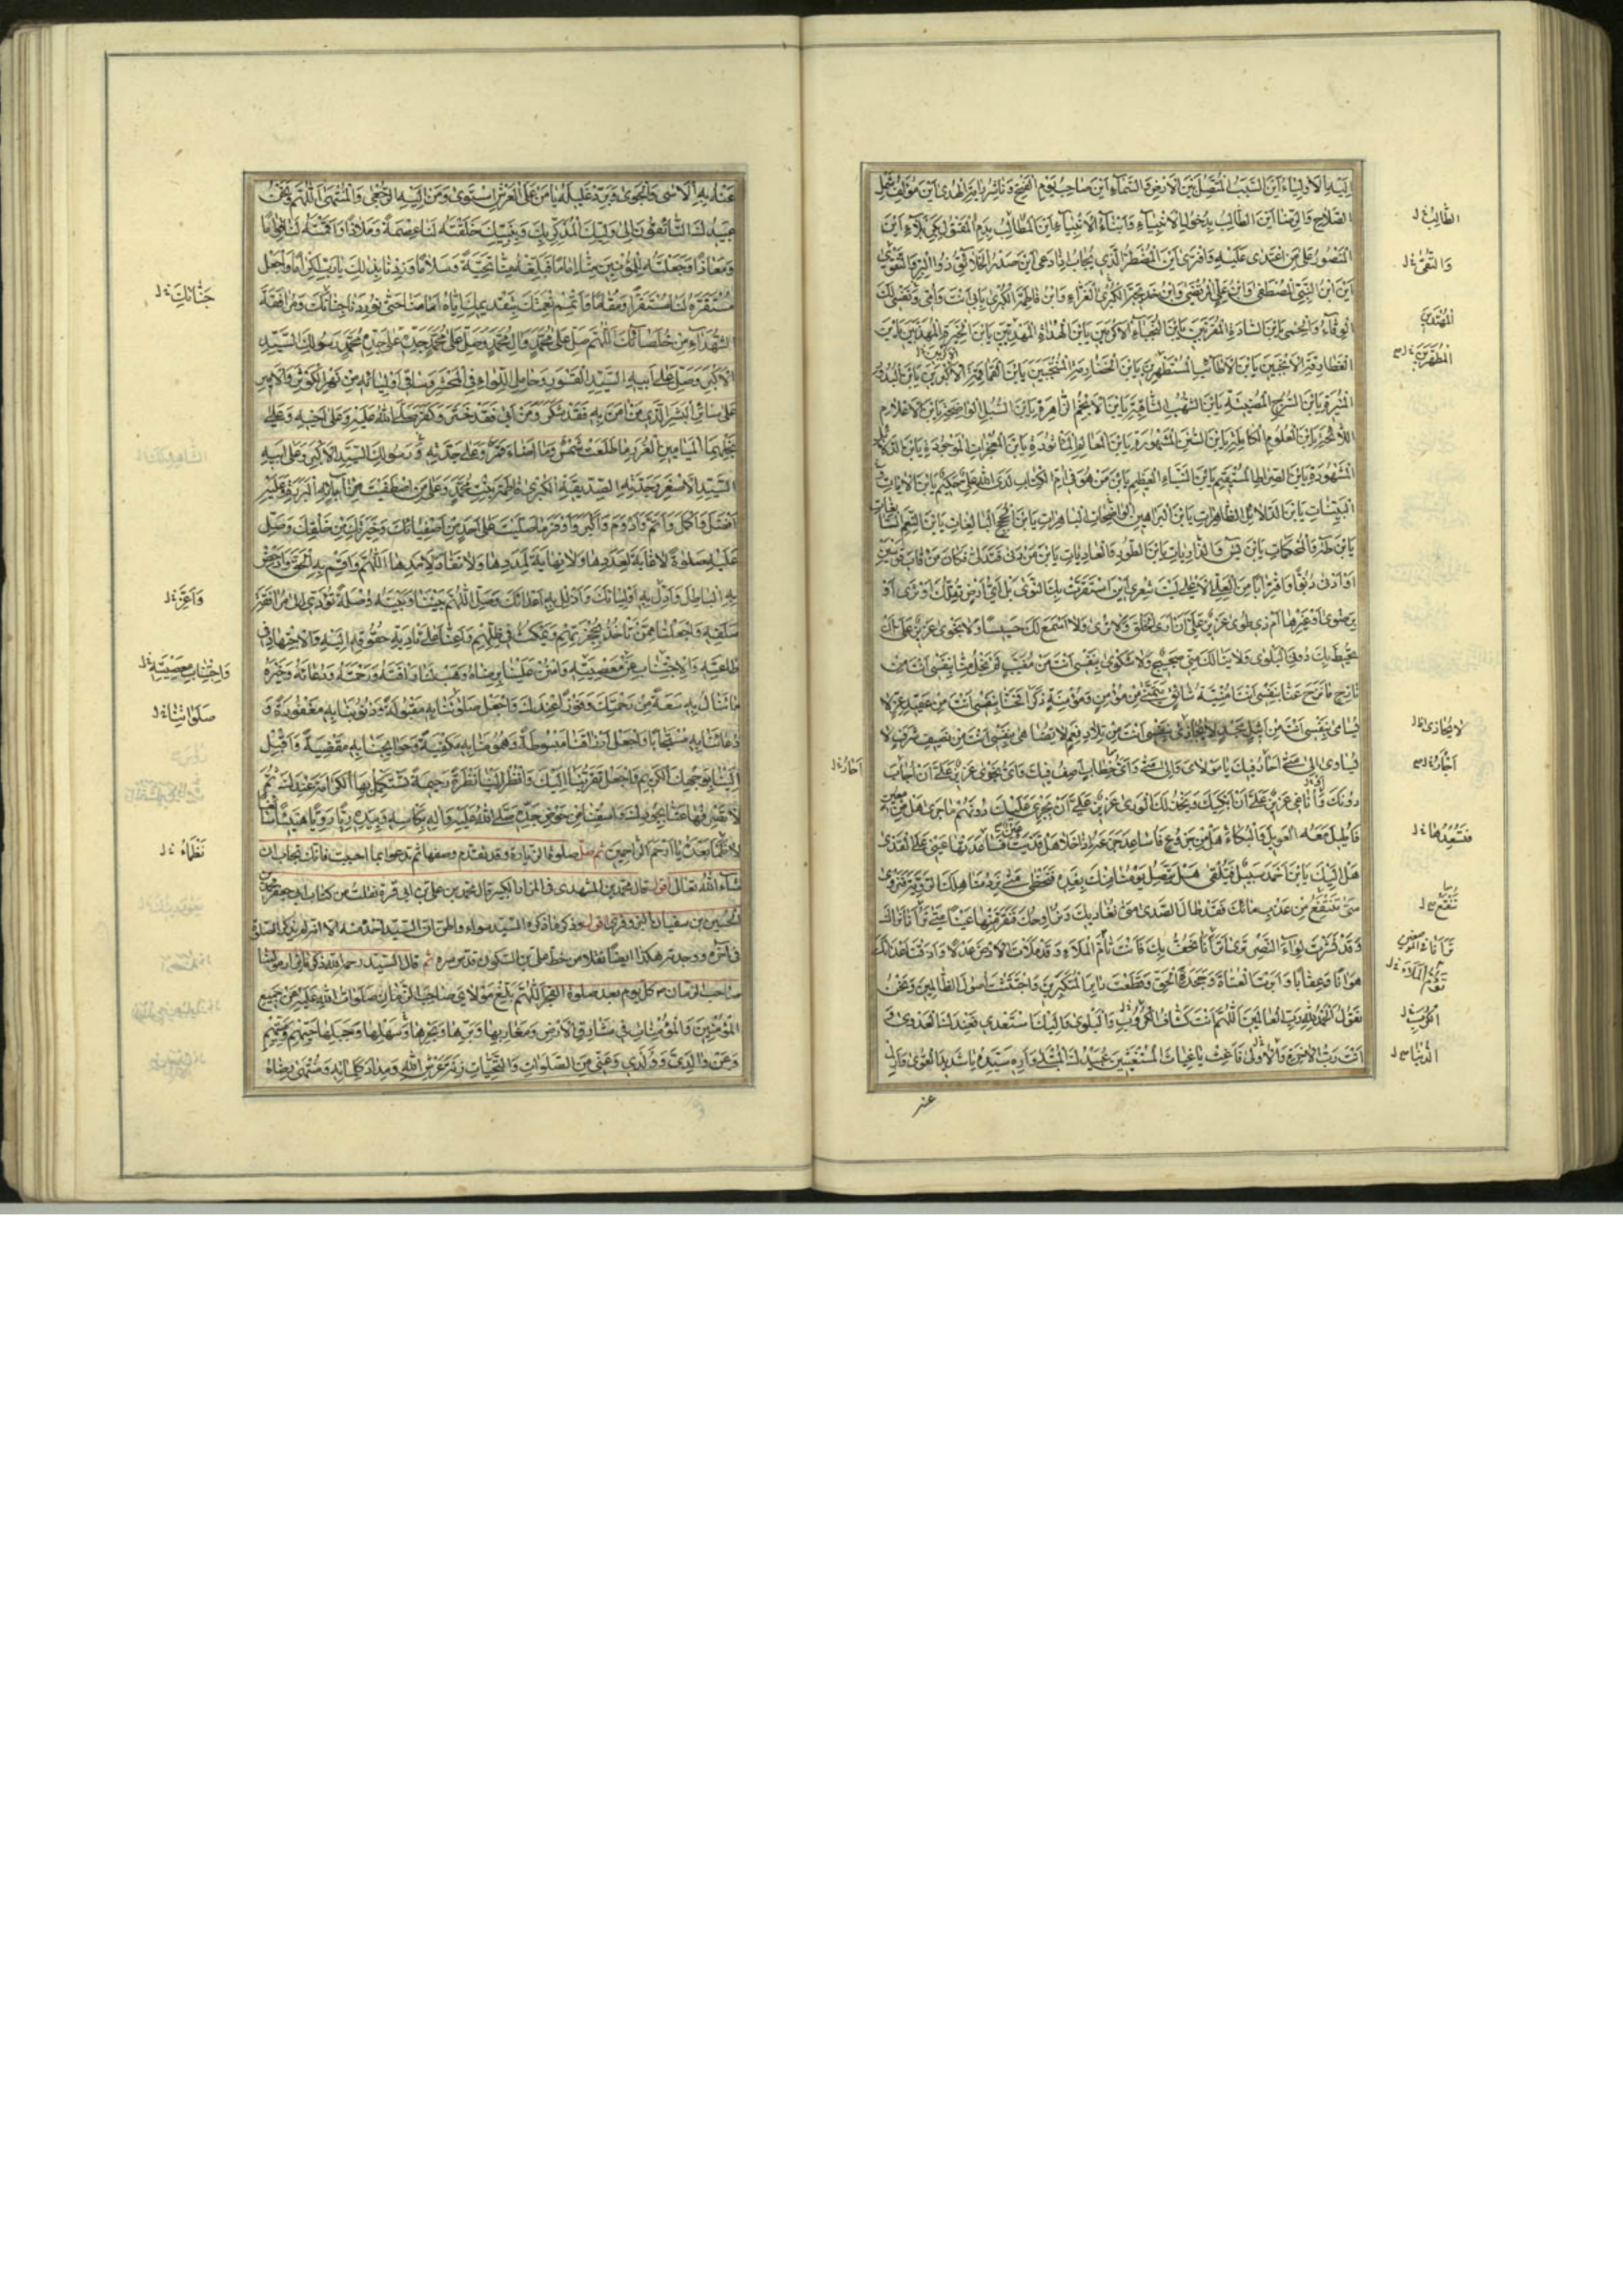 اِلَيْهِ الْاَوْلِيَاءُ اَيْنَ السَّبَبُ الْمُتَّصِلُ بَيْنَ الْاَرْضِ وَالسَّمَاءِ اَيْنَ صَاحِبُ يَوْمِ الْفَتْحِ وَنَاشِرُ رَايَةِ الْهُدى اَيْنَ مُؤَلِّفُ شَمْلِ
الصَّلَاحِ وَالرِّضَا اَيْنَ الطَّالِبُ بِذُحُولِ الْاَنْبِيَاءِ وَاَبْنَاءِ الْاَنْبِيَاءِ اَيْنَ الْمُطَالِبُ بِدَمِ الْمَقْتُولِ بِكَرْبَلَاءَ اَيْنَ
الْمَنْصُورُ عَلى مَنِ اعْتَدى عَلَيْهِ وَافْتَرى اَيْنَ الْمُضْطَرُّ الَّذِي يُجَابُ اِذَا دَعى اَيْنَ صَدْرُ الْخَلَائِقِ ذُو الْبِرِّ وَالتَّقْوى
اَيْنَ ابْنُ النَّبِيِّ الْمُصْطَفى وَابْنُ عَلِيٍّ الْمُرْتَضى وَابْنُ خَدِيجَةَ الْغَرَّاءِ وَابْنُ فَاطِمَةَ الْكُبْرى بِاَبِي اَنْتَ وَاُمِّي وَنَفْسِي لَكَ
الْوِقَاءُ وَالْحِمى يَابْنَ السَّادَةِ الْمُقَرَّبِينَ يَابْنَ النُّجَبَاءِ الْاَكْرَمِينَ يَابْنَ الْهُدَاةِ الْمَهْدِيِّينَ يَابْنَ الْخِيَرَةِ الْمُهَذَّبِينَ يَابْنَ
الْغَطَارِفَةِ الْاَنْجَبِينَ يَابْنَ الْاَطَائِبِ الْمُسْتَظْهِرِينَ يَابْنَ الْخَضَارِمَةِ الْمُنْتَجَبِينَ يَابْنَ الْقَمَاقِمَةِ الْاَكْبَرِينَ يَابْنَ الْبُدُورِ
الْمُنِيرَةِ يَابْنَ السُّرُجِ الْمُضِيئَةِ يَابْنَ الشُّهُبِ الثَّاقِبَةِ يَابْنَ الْاَنْجُمِ الزَّاهِرَةِ يَابْنَ السُّبُلِ الْوَاضِحَةِ يَابْنَ الْاَعْلَامِ
اللَّائِحَةِ يَابْنَ الْعُلُومِ الْكَامِلَةِ يَابْنَ السُّنَنِ الْمَشْهُورَةِ يَابْنَ الْمَعَالِمِ الْمَأْثُورَةِ يَابْنَ الْمُعْجِزَاتِ الْمَوْجُودَةِ يَابْنَ الدَّلَائِلِ
الْمَشْهُودَةِ يَابْنَ الصِّرَاطِ الْمُسْتَقِيمِ يَابْنَ النَّبَاِ الْعَظِيمِ يَابْنَ مَنْ هُوَ فِي اُمِّ الْكِتَابِ لَدَى اللهِ عَلِيٌّ حَكِيمٌ يَابْنَ الْايَاتِ
الْبَيِّنَاتِ يَابْنَ الدَّلَائِلِ الظَّاهِرَاتِ يَابْنَ الْبَرَاهِينِ الْوَاضِحَاتِ الْبَاهِرَاتِ يَابْنَ الْحُجَجِ الْبَالِغَاتِ يَابْنَ النِّعَمِ السَّابِغَاتِ
يَابْنَ طه وَالْمُحْكَمَاتِ يَابْنَ يس وَالذَّارِيَاتِ يَابْنَ الطُّورِ وَالْعَادِيَاتِ يَابْنَ مَنْ دَنى فَتَدَلّى فَكَانَ قَابَ قَوْسَيْنِ
اَوْ اَدْنى دُنُوًّا وَاقْتِرَابًا مِنَ الْعَلِيِّ الْاَعْلى لَيْتَ شِعْرِي اَيْنَ اسْتَقَرَّتْ بِكَ النَّوى بَلْ اَيُّ اَرْضٍ تُقِلُّكَ اَوْ ثَرى اَوْ
بِرَضْوى اَوْ غَيْرِهَا اَمْ ذِي طُوى عَزِيزٌ عَلَيَّ اَنْ اَرَى الْخَلْقَ وَلَا تُرى وَلَا اَسْمَعَ لَكَ حَسِيسًا وَلَا نَجْوى عَزِيزٌ عَلَيَّ اَنْ
تُحِيطَ بِكَ دُونِيَ الْبَلْوى وَلَا يَنَالَكَ مِنِّي ضَجِيجٌ وَلَا شَكْوى بِنَفْسِي اَنْتَ مِنْ مُغَيَّبٍ لَمْ يَخْلُ مِنَّا بِنَفْسِي اَنْتَ مِنْ
نَازِحٍ مَا نَزَحَ عَنَّا بِنَفْسِي اَنْتَ اُمْنِيَّةُ شَائِقٍ يَتَمَنّى مِنْ مُؤْمِنٍ وَمُؤْمِنَةٍ ذَكَرَا فَحَنَّا بِنَفْسِي اَنْتَ مِنْ عَقِيدِ عِزٍّ لَا
يُسَامى بِنَفْسِي اَنْتَ مِنْ اَثِيلِ مَجْدٍ لَا يُجَارى بِنَفْسِي اَنْتَ مِنْ تِلَادِ نِعَمٍ لَا تُضَاهى بِنَفْسِي اَنْتَ مِنْ نَصِيفِ شَرَفٍ لَا
يُسَاوى اِلى مَتى اَحَارُ فِيكَ يَا مَوْلَايَ وَاِلى مَتى وَاَيَّ خِطَابٍ اَصِفُ فِيكَ وَاَيَّ نَجْوى عَزِيزٌ عَلَيَّ اَنْ اُجَابَ
دُونَكَ وَاُنَاغى عَزِيزٌ عَلَيَّ اَنْ اَبْكِيَكَ وَيَخْذُلَكَ الْوَرى عَزِيزٌ عَلَيَّ اَنْ يَجْرِيَ عَلَيْكَ دُونَهُمْ مَا جَرى هَلْ مِنْ مُعِينٍ
فَاُطِيلَ مَعَهُ الْعَوِيلَ وَالْبُكَاءَ هَلْ مِنْ جَزُوعٍ فَاُسَاعِدَ جَزَعَهُ اِذَا خَلَا هَلْ قَذِيَتْ عَيْنٌ فَسَاعَدَتْهَا عَيْنِي عَلَى الْقَذى
هَلْ اِلَيْكَ يَابْنَ اَحْمَدَ سَبِيلٌ فَتُلْقى هَلْ يَتَّصِلُ يَوْمُنَا مِنْكَ بِغَدِهِ فَنَحْظى مَتى نَرِدُ مَنَاهِلَكَ الرَّوِيَّةَ فَنَرْوى
مَتى نَنْتَقِعُ مِنْ عَذْبِ مَائِكَ فَقَدْ طَالَ الصَّدى مَتى نُغَادِيكَ وَنُرَاوِحُكَ فَتَقَرَّ مِنْهَا عَيْنًا مَتى تَرَانَا نَرَاكَ
وَقَدْ نَشَرْتَ لِوَاءَ النَّصْرِ تُرى اَتَرَانَا نَحُفُّ بِكَ وَاَنْتَ تَاُمُّ الْمَلَأَ وَقَدْ مَلَاْتَ الْاَرْضَ عَدْلًا وَاَذَقْتَ اَعْدَاءَكَ
هَوَانًا وَعِقَابًا وَاَبَرْتَ الْعُتَاةَ وَجَحَدَةَ الْحَقِّ وَقَطَعْتَ دَابِرَ الْمُتَكَبِّرِينَ وَاجْتَثَثْتَ اُصُولَ الظَّالِمِينَ وَنَحْنُ
نَقُولُ الْحَمْدُ لِلّهِ رَبِّ الْعَالَمِينَ اَللّهُمَّ اَنْتَ كَشَّافُ الْكُرُوبِ وَالْبَلْوى وَاِلَيْكَ اَسْتَعْدِي فَعِنْدَكَ الْعَدْوى وَ
اَنْتَ رَبُّ الْاخِرَةِ وَالْاُولى فَاَغِثْ يَا غِيَاثَ الْمُسْتَغِيثِينَ عُبَيْدَكَ الْمُبْتَلى وَاَرِهِ سَيِّدَهُ يَا شَدِيدَ الْقُوى وَاَزِلْ
عنه
الطَّالِبُ
وَالتُّقى
الْمُهْتَدِينَ
الْمُطَهَّرِينَ
لَا يُحَاذى
اَحَارُ
نَنْتَفِعُ
الدُّنْيَا
عَنْهُ بِهِ الْاَسى وَالْجَوى وَبَرِّدْ غَلِيلَهُ يَا مَنْ عَلَى الْعَرْشِ اسْتَوى وَمَنْ اِلَيْهِ الرُّجْعى وَالْمُنْتَهى اَللّهُمَّ وَنَحْنُ
عَبِيدُكَ التَّائِقُونَ اِلى وَلِيِّكَ الْمُذَكِّرِ بِكَ وَبِنَبِيِّكَ خَلَقْتَهُ لَنَا عِصْمَةً وَمَلَاذًا وَاَقَمْتَهُ لَنَا قِوَامًا
وَمَعَاذًا وَجَعَلْتَهُ لِلْمُؤْمِنِينَ مِنَّا اِمَامًا فَبَلِّغْهُ مِنَّا تَحِيَّةً وَسَلَامًا وَزِدْنَا بِذلِكَ يَا رَبِّ اِكْرَامًا وَاجْعَلْ
مُسْتَقَرَّهُ لَنَا مُسْتَقَرًّا وَمُقَامًا وَاَتْمِمْ نِعْمَتَكَ بِتَقْدِيمِكَ اِيَّاهُ اَمَامَنَا حَتّى تُورِدَنَا جِنَانَكَ وَمُرَافَقَةَ
الشُّهَدَاءِ مِنْ خُلَصَائِكَ اَللّهُمَّ صَلِّ عَلى مُحَمَّدٍ وَالِ مُحَمَّدٍ وَصَلِّ عَلى مُحَمَّدٍ جَدِّهِ رَسُولِكَ السَّيِّدِ
الْاَكْبَرِ وَصَلِّ عَلى اَبِيهِ السَّيِّدِ الْقَسْوَرِ وَحَامِلِ اللِّوَاءِ فِي الْمَحْشَرِ وَسَاقِي اَوْلِيَائِهِ مِنْ نَهْرِ الْكَوْثَرِ وَالْاَمِيرِ
عَلى سَائِرِ الْبَشَرِ الَّذِي مَنْ امَنَ بِهِ فَقَدْ شَكَرَ وَمَنْ اَبى فَقَدْ خَتَرَ وَكَفَرَ صَلَّى اللهُ عَلَيْهِ وَعَلى اَخِيهِ وَعَلى
نَجْلِهِمَا الْمَيَامِينِ الْغُرَرِ مَا طَلَعَتْ شَمْسٌ وَمَا اَضَاءَ قَمَرٌ وَعَلى جَدِّهِ رَسُولِكَ السَّيِّدِ الْاَكْبَرِ وَعَلى اَبِيهِ
السَّيِّدِ الْاَصْغَرِ وَجَدَّتِهِ الصِّدِّيقَةِ الْكُبْرى فَاطِمَةَ بِنْتِ مُحَمَّدٍ وَعَلى مَنِ اصْطَفَيْتَ مِنْ ابَائِهِ الْبَرَرَةِ وَعَلَيْهِ
اَفْضَلَ وَاَكْمَلَ وَاَتَمَّ وَاَدْوَمَ وَاَكْبَرَ وَاَوْفَرَ مَا صَلَّيْتَ عَلى اَحَدٍ مِنْ اَصْفِيَائِكَ وَخِيَرَتِكَ مِنْ خَلْقِكَ وَصَلِّ
عَلَيْهِ صَلوةً لَا غَايَةَ لِعَدَدِهَا وَلَا نِهَايَةَ لِمَدَدِهَا وَلَا نَفَادَ لِاَمَدِهَا اَللّهُمَّ وَاَقِمْ بِهِ الْحَقَّ وَاَدْحِضْ
بِهِ الْبَاطِلَ وَاَدِلْ بِهِ اَوْلِيَاءَكَ وَاَذْلِلْ بِهِ اَعْدَاءَكَ وَصِلِ اللّهُمَّ بَيْنَنَا وَبَيْنَهُ وُصْلَةً تُؤَدِّي اِلى مُرَافَقَةِ
سَلَفِهِ وَاجْعَلْنَا مِمَّنْ يَأْخُذُ بِحُجْزَتِهِمْ وَيَمْكُثُ فِي ظِلِّهِمْ وَاَعِنَّا عَلى تَادِيَةِ حُقُوقِهِ اِلَيْهِ وَالْاِجْتِهَادِ فِي
طَاعَتِهِ وَالْاِجْتِنَابِ عَنْ مَعْصِيَتِهِ وَامْنُنْ عَلَيْنَا بِرِضَاهُ وَهَبْ لَنَا رَافَتَهُ وَرَحْمَتَهُ وَدُعَاءَهُ وَخَيْرَهُ
مَا نَنَالُ بِهِ سَعَةً مِنْ رَحْمَتِكَ وَفَوْزًا عِنْدَكَ وَاجْعَلْ صَلوتَنَا بِهِ مَقْبُولَةً وَذُنُوبَنَا بِهِ مَغْفُورَةً وَ
دُعَاءَنَا بِهِ مُسْتَجَابًا وَاجْعَلْ اَرْزَاقَنَا مَبْسُوطَةً وَهُمُومَنَا بِهِ مَكْفِيَّةً وَحَوَائِجَنَا بِهِ مَقْضِيَّةً وَاَقْبِلْ
اِلَيْنَا بِوَجْهِكَ الْكَرِيمِ وَاقْبَلْ تَقَرُّبَنَا اِلَيْكَ وَانْظُرْ اِلَيْنَا نَظْرَةً رَحِيمَةً نَسْتَكْمِلُ بِهَا الْكَرَامَةَ عِنْدَكَ ثُمَّ
لَا تَصْرِفْهَا عَنَّا بِجُودِكَ وَاسْقِنَا مِنْ حَوْضِ جَدِّهِ صَلَّى اللهُ عَلَيْهِ وَالِهِ بِكَاسِهِ وَبِيَدِهِ رَيًّا رَوِيًّا هَنِيئًا سَائِغًا
لَا ظَمَاَ بَعْدَهُ يَا اَرْحَمَ الرَّاحِمِينَ ثم صل صلوة الزيارة وقد تقدم وصفها ثم تدعو بما احببت فانك تجاب ان
شاء الله تعالى اقول قال محمد بن المشهدى فى المزار الكبير قال محمد بن على بن ابى قرة نقلت من كتاب ابى جعفر محمد بن
الحسين بن سفيان البزوفرى
صاحب الزمان كل يوم بعد صلوة الفجر اَللّهُمَّ بَلِّغْ مَوْلَايَ صَاحِبَ الزَّمَانِ صَلَوَاتُ اللهِ عَلَيْهِ عَنْ جَمِيعِ
الْمُؤْمِنِينَ وَالْمُؤْمِنَاتِ فِي مَشَارِقِ الْاَرْضِ وَمَغَارِبِهَا وَبَرِّهَا وَبَحْرِهَا وَسَهْلِهَا وَجَبَلِهَا حَيِّهِمْ وَمَيِّتِهِمْ
وَعَنْ وَالِدَيَّ وَوُلْدِي وَعَنِّي مِنَ الصَّلَوَاتِ وَالتَّحِيَّاتِ زِنَةَ عَرْشِ اللهِ وَمِدَادَ كَلِمَاتِهِ وَمُنْتَهى رِضَاهُ
جَنَّاتِكَ
وَاَعِزَّ
وَاجْتِنَابِ مَعْصِيَتِهِ
صَلَوَاتِنَا